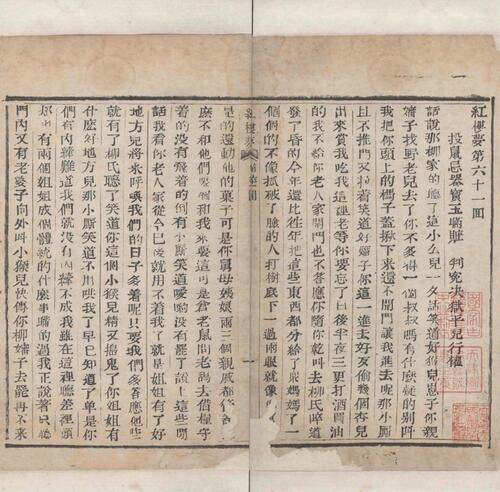 紅樓夢第六十一回
投鼠忌器寶玉瞞贓 判冤决獄平兒行權
話說那柳家的聽了這小么兒一夕話笑道好猴兒崽子你親
嬸子找野老兒去了你不多得一個叔叔嗎有什麽疑的别叫
我把你頭上的榪子蓋揪下來還不開門讓我進去呢那小厮
且不推門又拉着笑道好嬸子你這一進去好歹偷幾個杏兒
出來賞我吃我這裡老等你要忘了日後半夜三更打酒買油
的我不給你老人家開門也不答應你隨你乾叫去柳氏啐道
發了昏的今年還比往年把這些東西都分給了衆媽媽了一
個個的不像抓破了臉的人打樹底下一過兩眼就像
紅樓夢
是的還動他的菓子可是你舅母姨娘兩三個親戚都
麽不和他們要去倒和我來要這可是倉老鼠問老鴰去借糧守
着的没有飛着的倒有小厮笑道噯喲没有罷了說上這些閒
話我看你老人家從今已後就用不着我了就是姐姐有了好
地方兒將來呼喚我們的日子多着呢只要我們多答應他些
就有了柳氏聽了笑道你這個小猴兒精又搗鬼了你姐姐有
什麽好地方兒那小厮笑道不用哄我了早已知道了單是你
們有内縴難道我們就没有内縴不成我雖在這裡聽差裡頭
却也有兩個姐姐成個體統的什麽事瞞的過我正說着只聽
門内又有老婆子向外叫小猴兒快傳你柳嬸子去罷再不來